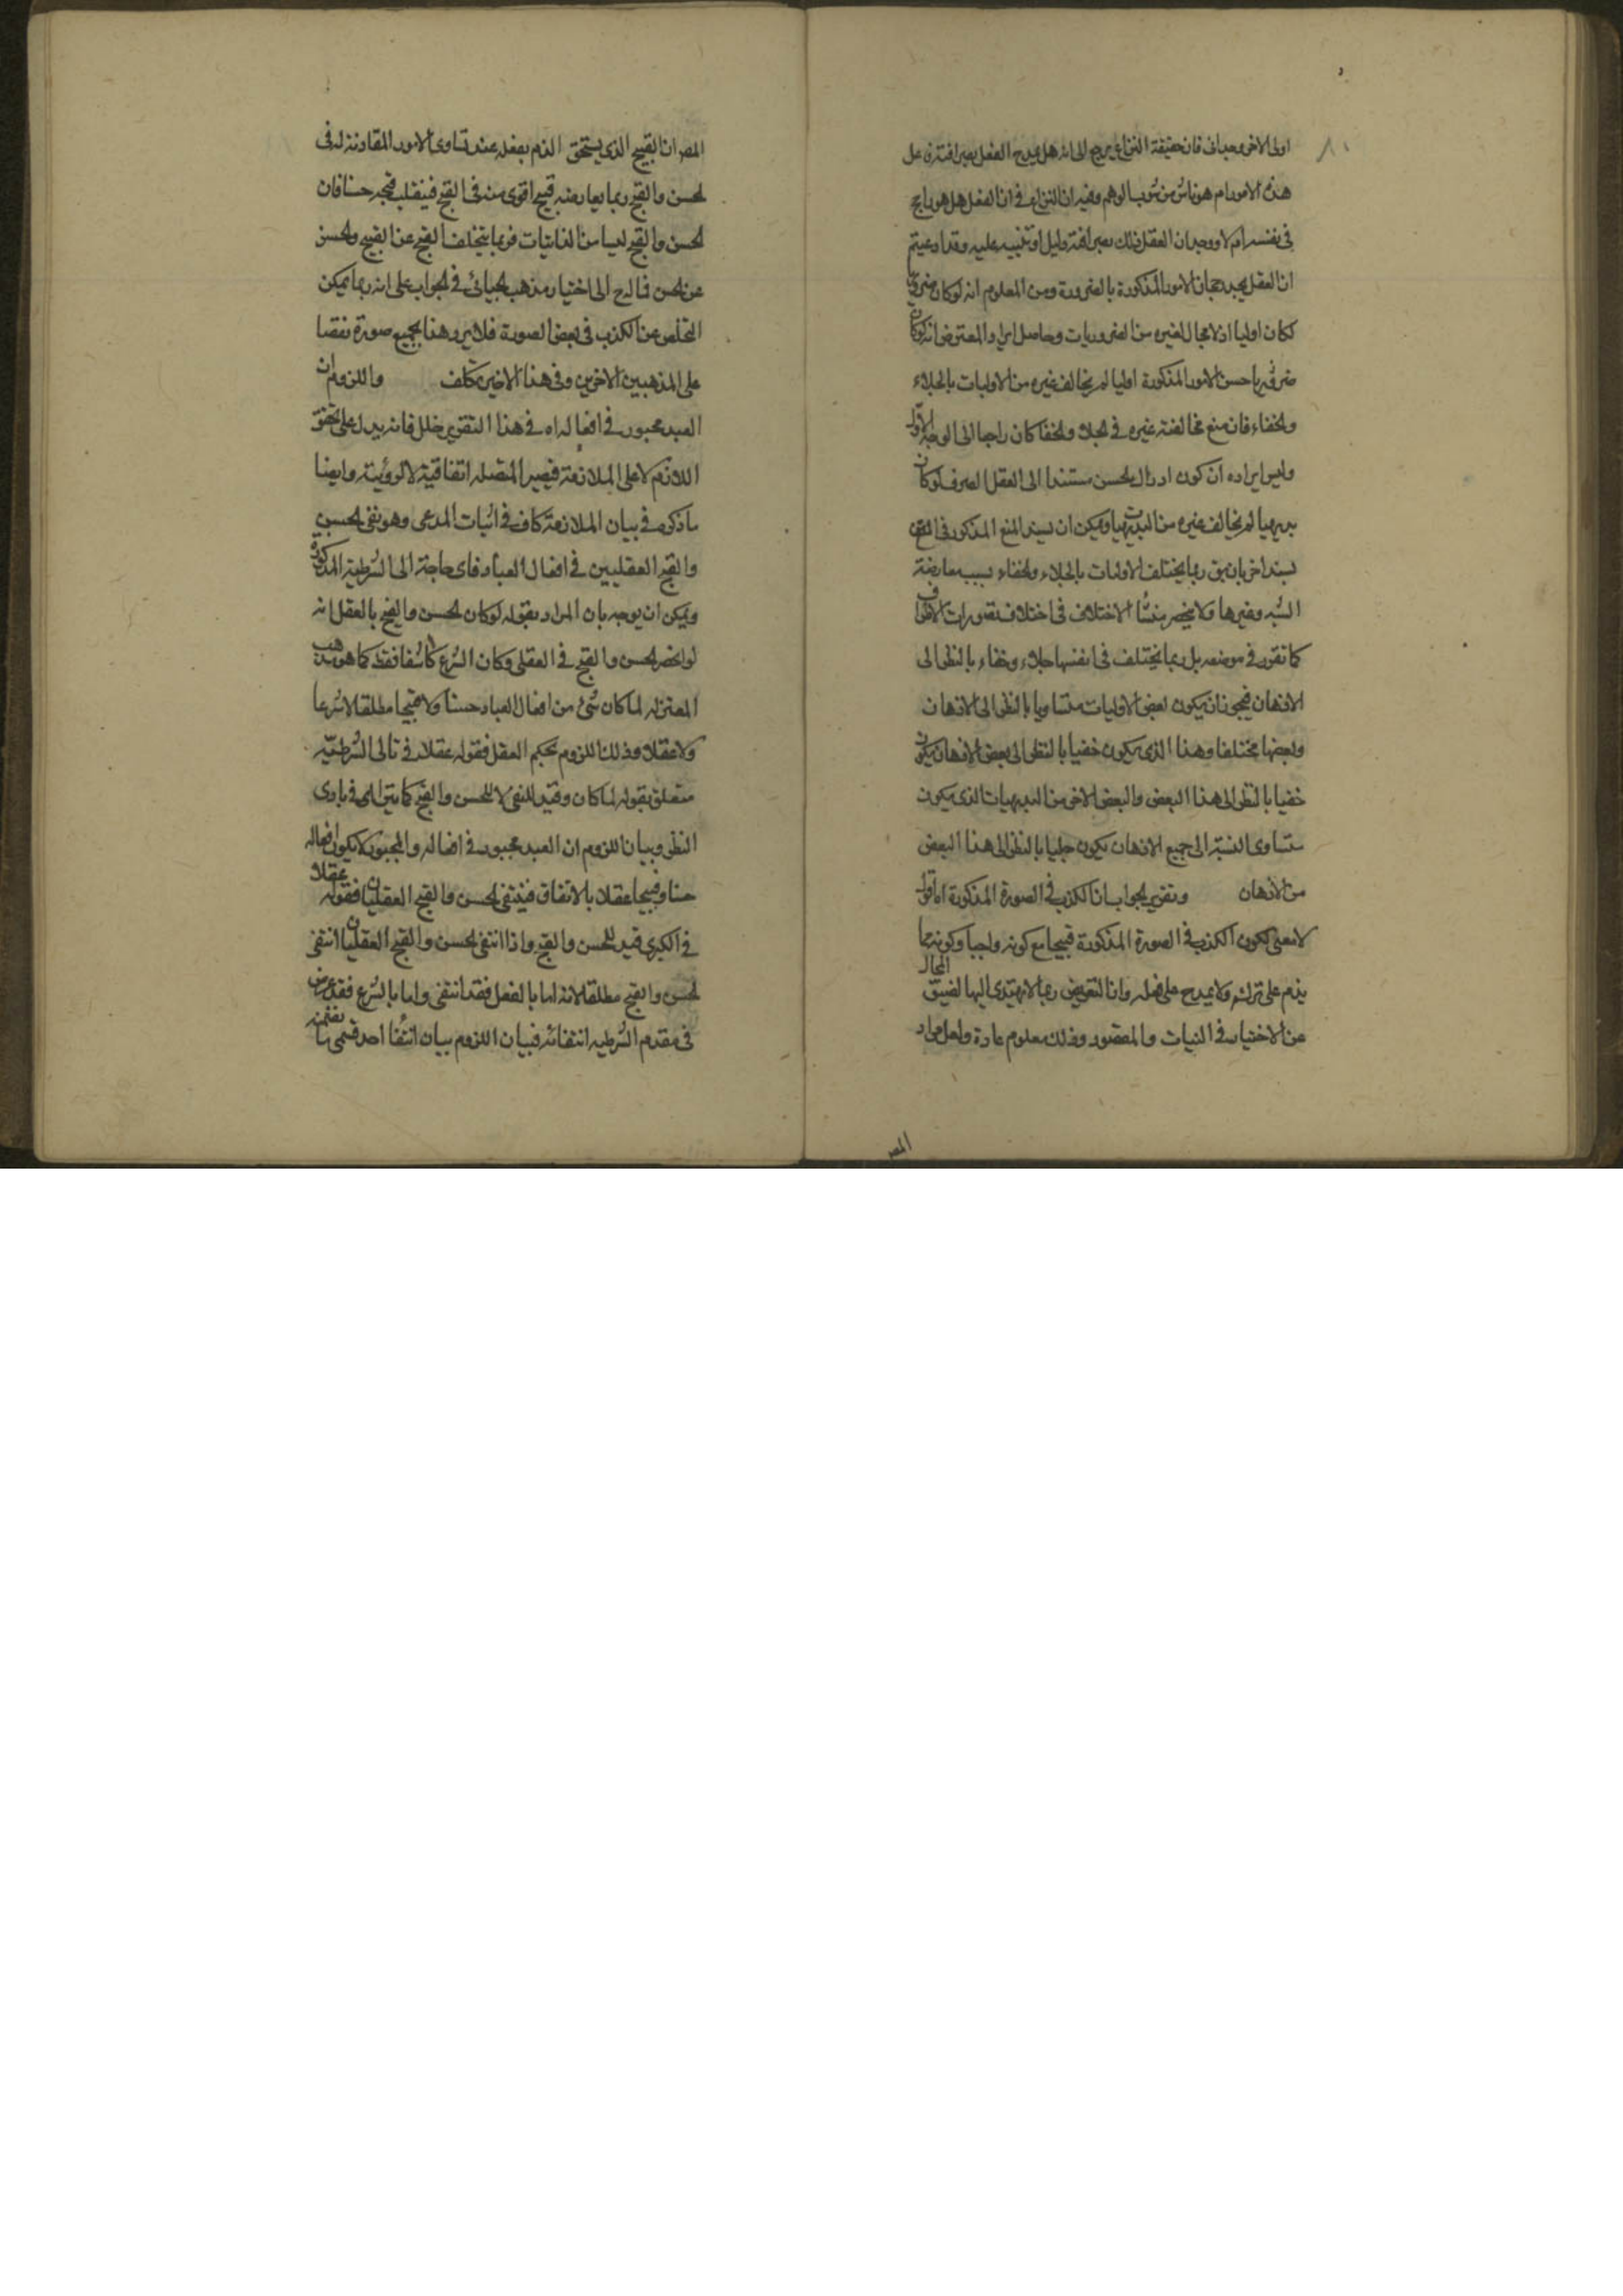 اولى الاخر وجدانى فان حقيقة النزاع يرجع الى انه هل يمدح الفعل بعبرافته فى عل
هذه الامور ام هو ناش من شوب الوهم وفيه ان النزاع فى ان الفعل هل هو راجح
فى نفسه ام لا ووجدان العقل ذلك دليل او تنبيه عليه وقد ادعيتم
ان العقل يجد رجحان الامور المذكورة بالضرورة ومن المعلوم انه لو كان ضروريا
لكان اوليا اذ لا مجال لغيره من الضروريات وحاصل ايراد المعترض انه لو كان
ضروريا حسن الامور المذكورة اوليا لم يخالف غيره من الاوليات بالجلاء
والخفاء فان منع مخالفته غيره فى الجلا والخفا كان راجعا الى الوجه الاول
وليس ايراده ان كون ادراك الحسن مستندا الى العقل الصرف لو كان
بديهيا لم يخالف غيره من البديهيات ويمكن ان يسند المنع المذكور فى
بسند اخر بان يق ربما يختلف الاوليات بالجلاء والخفاء بسبب معارضة
الشبه وغيرها ولا ينحصر منشأ الاختلاف فى اختلاف تصورات الاطراف
كما تقرر فى موضعه بل ربما يختلف فى انفسها جلاء وخفاء بالنظر الى
الاذهان فيجوز ان يكون بعض الاوليات متساويا بالنظر الى الاذهان
وبعضها مختلفا وهذا الذى يكون خفيا بالنظر الى بعض الاذهان يكون
خفيا بالنظر الى هذا البعض والبعض الاخر من البديهيات الذى يكون
متساوى النسبة الى جميع الاذهان يكون جليا بالنظر الى هذا البعض
من الاذهان وتقرير الجواب ان الكذب فى الصورة المذكورة
لا معنى لكون الكذب فى الصورة المذكورة قبيحا مع كونه واجبا وكونه مما
يذم على تركه ولا يمدح على فعله وان التعريض ربما لا يهتدى اليها لضيق المجال
عن الاختيار فى النيات والمقصود وذلك معلوم عادة ولعل مراد
المص
المص ان القبيح الذى يستحق الذم بفعله عند تساوى الامور المقارنة له فى
الحسن والقبح ربما يعارضه قبيح اقوى منه فى القبح فينقلب قبحه حسنا فان
الحسن والقبح ليسا من الذاتيات فربما يتخلف القبح عن القبيح والحسن
عن الحسن فالرح الى اختيار مذهب الجبائى فى الجواب على انه ربما يمكن
التخلص عن الكذب فى بعض الصورة فلا يرد هنا بجميع صورة نقضا
على المذهبين الاخرين وفى هذا الاخير تكلف واللزوم ان
العبد مجبور فى افعاله اه فى هذا التقرير خلل فانه يدل على تحقق
اللازم لا على الملازمة فيصير المتصلة اتفاقية لا لزومية وايضا
ما ذكره فى بيان الملازمة كاف فى اثبات المدعى وهو نفى الحسن
والقبح العقليين فى افعال العباد فاى حاجة الى الشرطية المذكورة
ويمكن ان يوجه بان المراد بقوله لو كان الحسن والقبح بالعقل انه
لو انحصر الحسن والقبح فى العقلى وكان الشرع كاشفا فقط كما هو مذهب
المعتزله لما كان شئ من افعال العباد حسنا ولا قبيحا مطلقا لا شرعا
ولا عقلا وذلك للزوم تحكيم العقل فقوله عقلا فى تالى الشرطية
متعلق بقوله لما كان وقيد للنفى لا للحسن والقبح كما يترائى فى بادى
النظر وبيان اللزوم ان العبد مجبور فى افعاله والمجبور لا يكون افعاله
حسنا وقبيحا عقلا بالاتفاق فينتفى الحسن والقبح العقليان فقوله عقلا
فى الكبرى قيد للحسن والقبح واذا انتفى الحسن والقبح العقليان انتفى
الحسن والقبح مطلقا لانه اما بالفعل فقد انتفى واما بالشرع فقد فرض
فى مقدم الشرطيه انتفائه فبيان اللزوم بيان انتفا احد قسمى ما